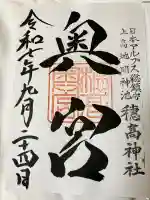 日本アルプス総鎮守
上高地明神池
穂高神社
奥宮
令和七年九月二十四日